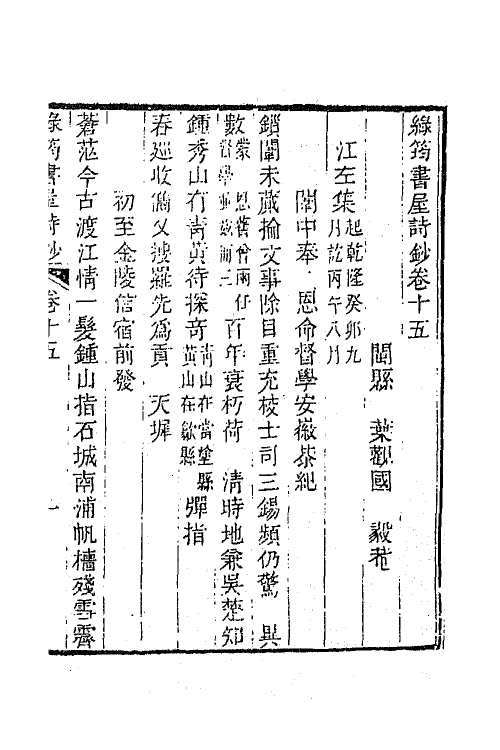 綠筠書屋詩鈔卷十五
閩縣 葉觀國 毅菴
江左集起乾隆癸卯九月訖丙午八月
闈中奉 恩命督學安徽恭紀
鎖闈未蕆掄文事除目重充校士司三錫頻仍驚 異
數蒙 恩嘗兩任督學並茲而三百年衰朽荷 清時地兼吳楚知
鍾秀山有靑黃待探奇靑山在當塗縣黃山在歙縣彈指
春巡收儁乂搜羅先爲貢 天墀
初至金陵信宿前發
蒼茫今古渡江情一髮鍾山指石城南浦帆檣殘雪霽
綠筠書屋詩鈔 卷十五 一